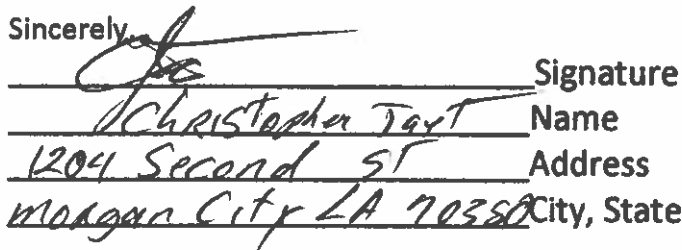 Sincerely,
Signature
Christopher Name
1204 Second ST Address
Morgan City LA 70380 City, State